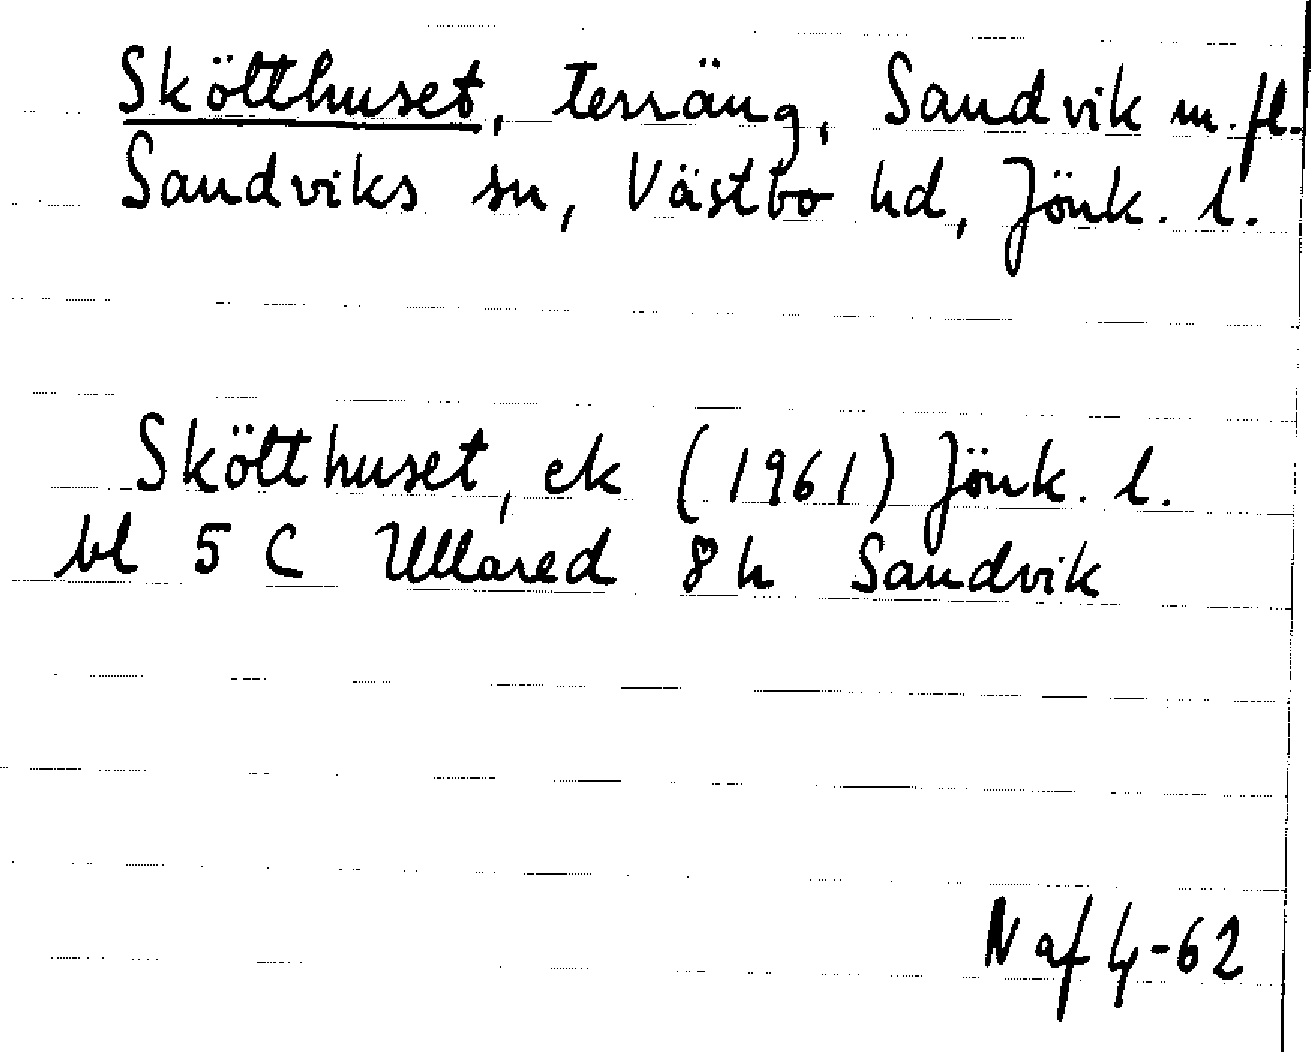 Skölthuset, terräng, Sandvik m.fl.
Sandviks sn, Västbo hd, Jönk. l.
Skölthuset, ek (1961) Jönk. l.
bl 5 C Ullared 8 h Sandvik
N af 4-62